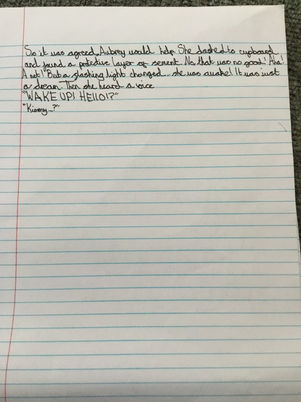 So it was agreed, Aubrey would help. She dashed to cupboard
and found a protective layer of cement. No that was no good! Aha!
A net! But a flashing light changed... she was awake! It was just
a dream. Then she heard a voice
"WAKE UP! HELLO!?"
"Kimmy...?"